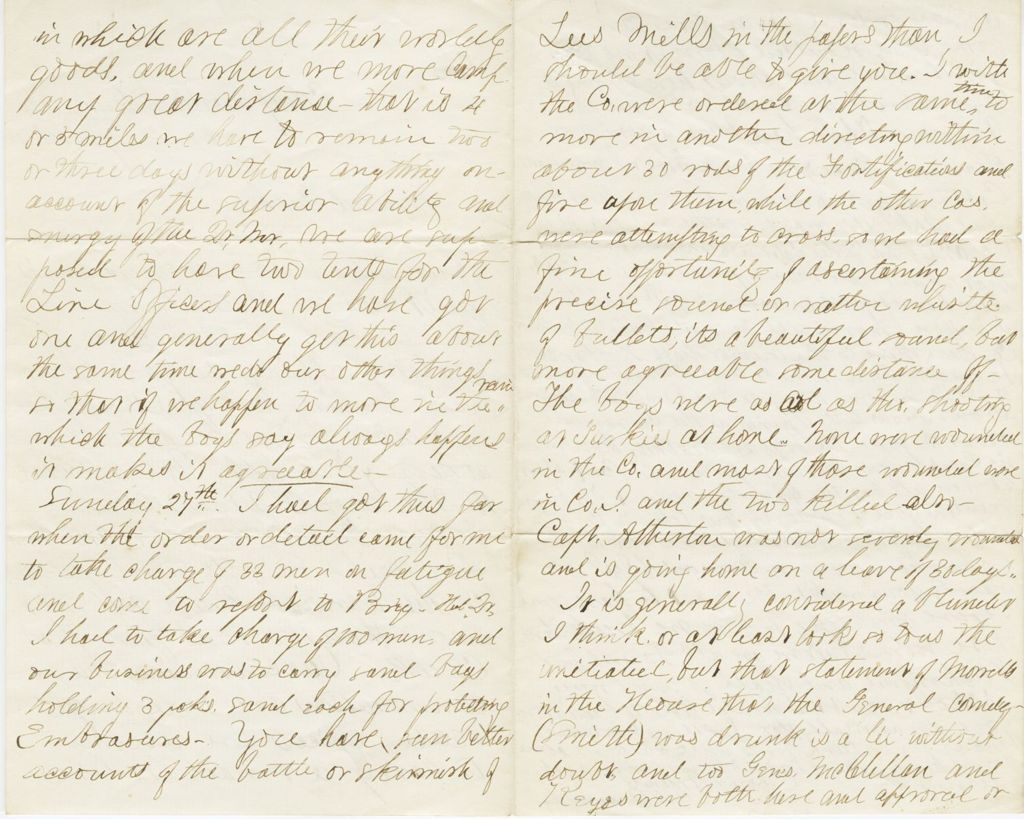 in which are all their worldly
goods. and when we move Camp
any great distance - that is 4
or 5 miles we have to remain two
or three days without anything on
account of the superior ability and
energy of the Qr. Mr. We are sup-
posed to have two tents for the
Line Officers and we have got
one and generally get this about
the same time we do our other things
so that if we happen to move in the rain
which the boys say always happens
it makes it agreeable -
Sunday 27th. I had got thus far
when the order or detail came for me
to take charge of 33 men on fatigue
and come to report to Brig. Hd. Qr.
I had to take charge of 100 men. and
our business was to carry sand bags
holding 3 pks. sand each for protecting
Embrasures - You have seen better
accounts of the battle or skirmish of
Lees Mills in the papers than I
should be able to give you. I with
the Co. were ordered at the same time to
move in another directing within
about 30 rods of the Fortifications and
fire upon them, while the other Cos.
were attempting to cross. so we had a
fine opportunity of ascertaining the
precise sound or rather whistle
of bullets, its a beautiful sound, but
more agreeable some distance off -
The boys were as cool as tho. shooting
at Turkies at home. None were wounded
in the Co. and most of those wounded were
in Co. I. and the two killed also -
Capt. Atherton was not severely wounded
and is going home on a leave of 30 days.
It is generally considered a blunder
I think. or at least looks so to us the
initiated, but that statement of Morrells
in the House that the General Comdg -
(Smith) was drunk is a lie without
doubt. and too Gens. McClellan and
Keyes were both here and approval or